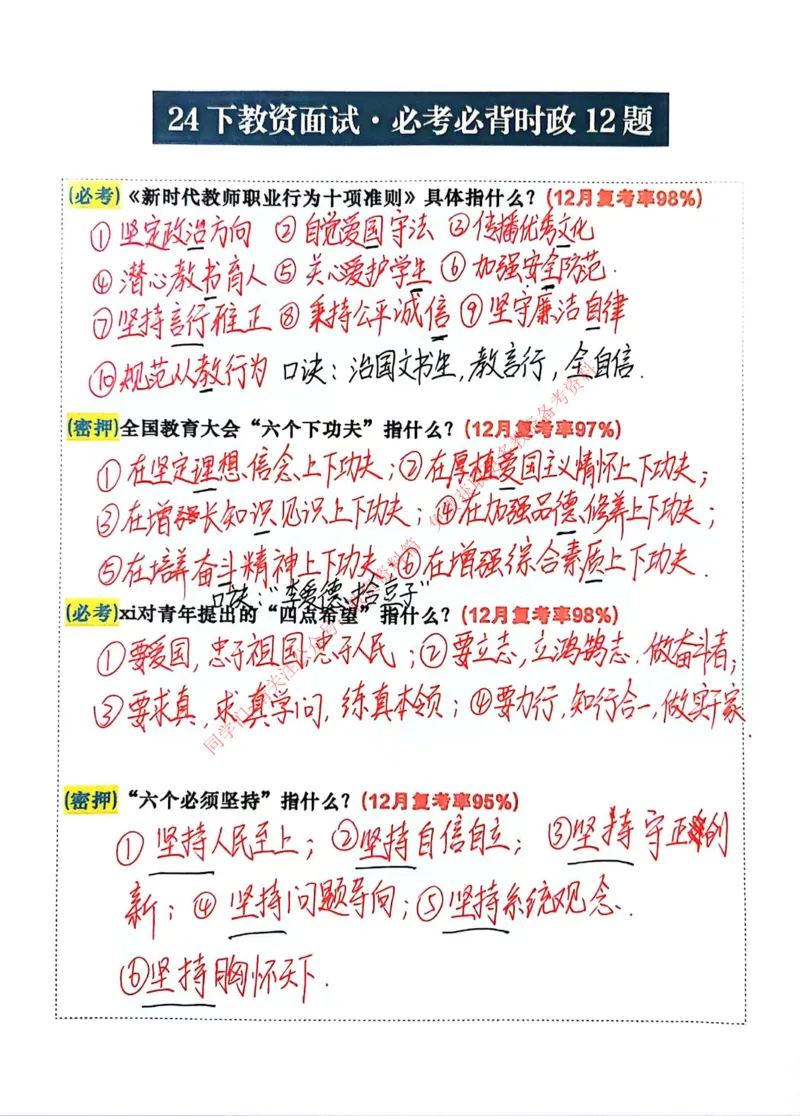 24下教资面试·必考必背时政12题
(必考)《新时代教师职业行为十项准则》具体指什么？(12月复考率98%)
①坚定政治方向 ②自觉爱国守法 ③传播优秀文化
④潜心教书育人 ⑤关心爱护学生 ⑥加强安全防范.
⑦坚持言行雅正 ⑧秉持公平诚信 ⑨坚守廉洁自律
⑩规范从教行为 口诀：治国文书生,教言行,全自信.
(密押)全国教育大会“六个下功夫”指什么？(12月复考率97%)
①在坚定理想、信念上下功夫;②在厚植爱国主义情怀上下功夫;
③在增长知识、见识上下功夫;④在加强品德、修养上下功夫;
⑤在培养奋斗精神上下功夫 ⑥在增强综合素质上下功夫.
口诀:“李爱德、拾豆子”
(必考)xi对青年提出的“四点希望”指什么？(12月复考率98%)
①要爱国,忠于祖国,忠于人民;②要立志,立鸿鹄志.做奋斗者;
③要求真,求真学问,练真本领;④要力行,知行合一,做实干家.
(密押)“六个必须坚持”指什么？(12月复考率95%)
①坚持人民至上;②坚持自信自立;③坚持守正创
新;④坚持问题导向;⑤坚持系统观念.
⑥坚持胸怀天下.